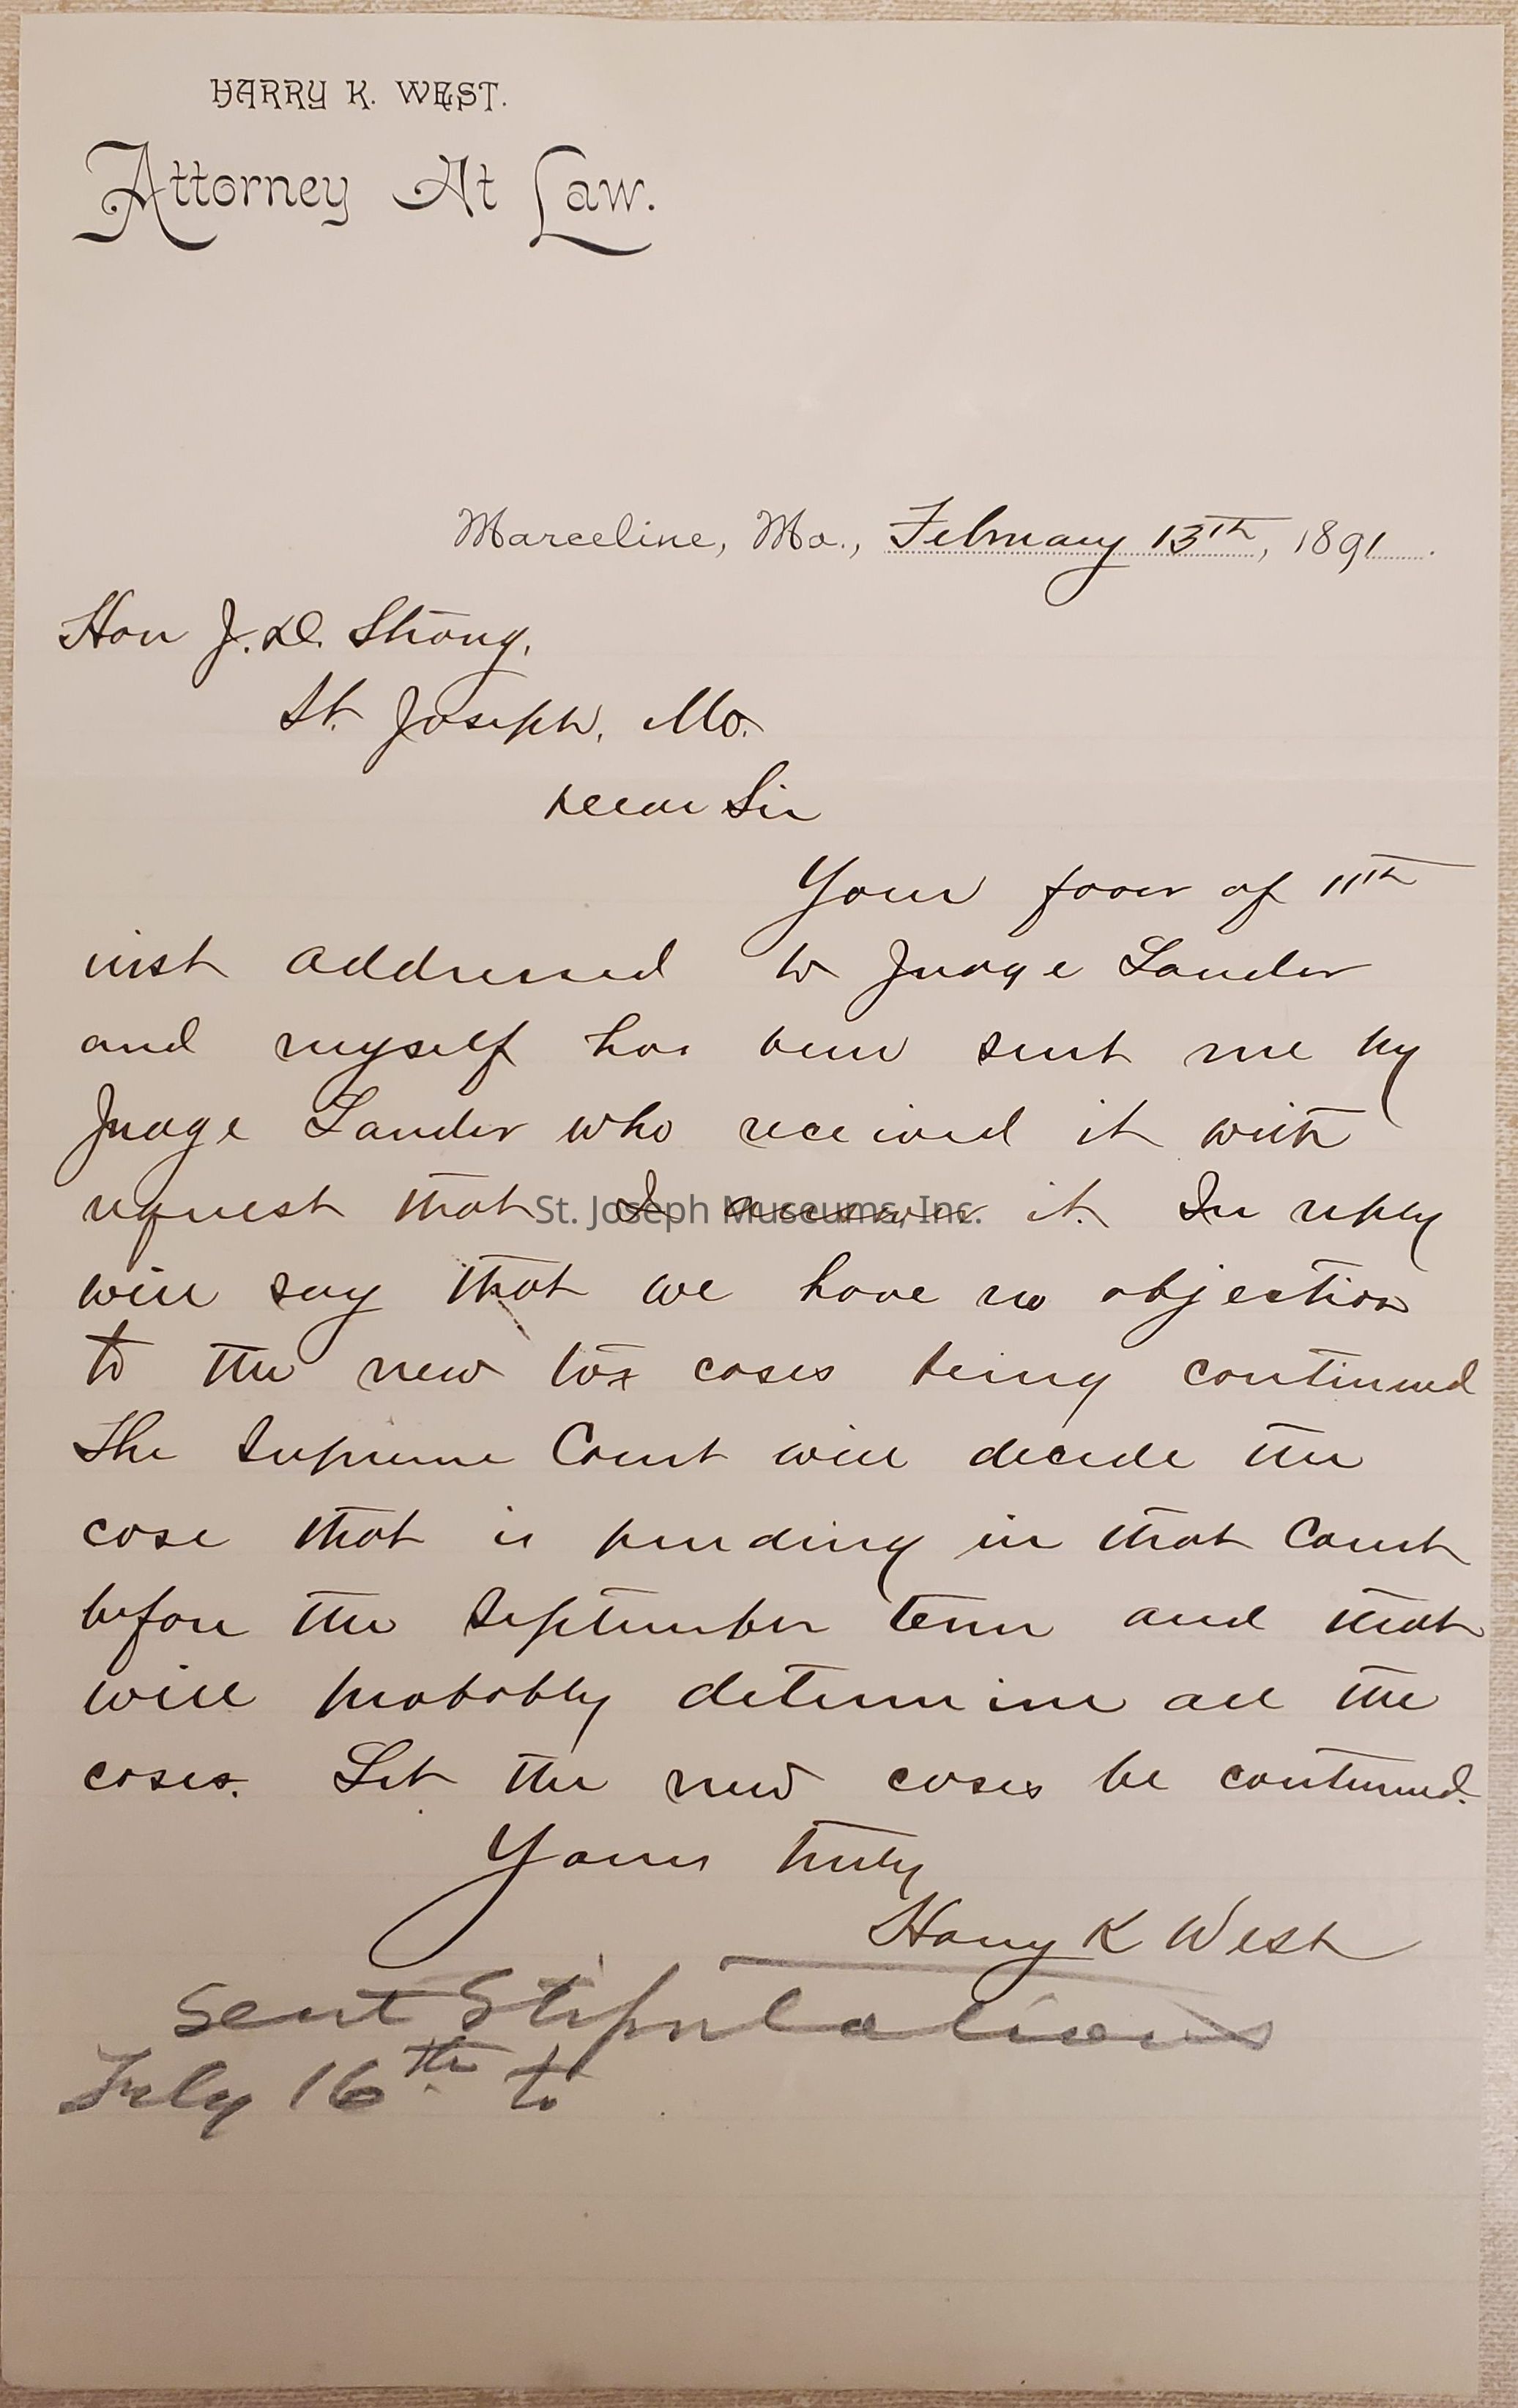 HARRY K. WEST.
Attorney At Law.
Marceline, Mo., February 13th, 1891.
Hon J. D. Strong,
St. Joseph, Mo.
Dear Sir
Your favor of 11th
inst addressed to Judge Lander
and myself has been sent me by
Judge Lander who received it with
request that I answer it. In reply
will say that we have no objection
to the new tax cases being continued
The Supreme Court will decide the
case that is pending in that Court
before the September term and that
will probably determine all the
cases. Let the new cases be continued.
Yours truly
Harry K West
Sent Stipulations
July 16th to
St. Joseph Museums, Inc.